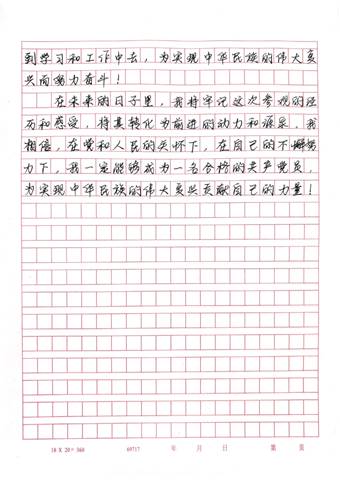 到学习和工作中去，为实现中华民族的伟大复
兴而努力奋斗！
在未来的日子里，我将牢记这次参观的经
历和感受，将其转化为前进的动力和源泉。我
相信，在党和人民的关怀下，在自己的不懈努
力下，我一定能够成为一名合格的共产党员，
为实现中华民族的伟大复兴贡献自己的力量！
18 X 20 = 360 69717 年 月 日 第 页